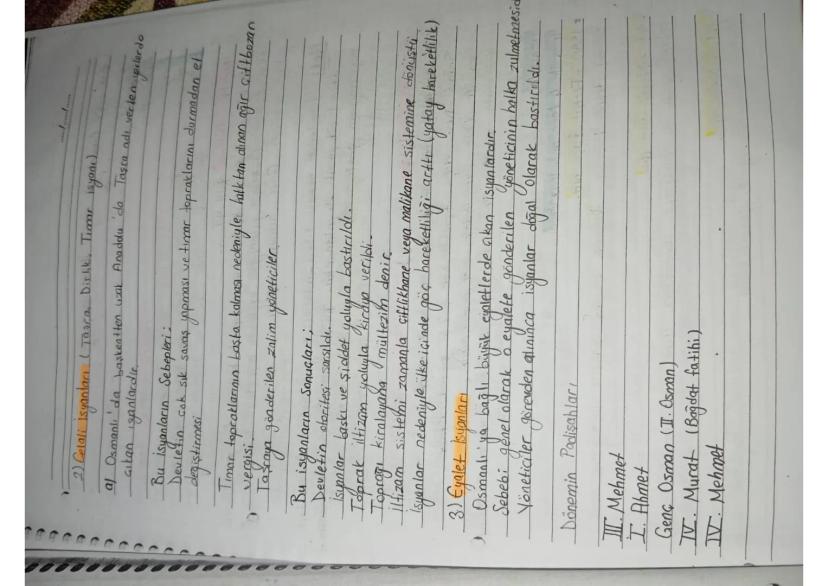 2) Celali İsyanları ( Taşra, Dirlik, Tımar isyanı)
a) Osmanlı'da başkentten uzak Anadolu'da Taşra adı verilen yerlerde
çıkan isyanlardır.
Bu isyanların Sebepleri;
Devletin çok sık savaş yapması ve tımar topraklarını durmadan el
değiştirmesi
Tımar topraklarının boşta kalması nedeniyle halktan alınan ağır çiftbozan
vergisi.
Taşraya gönderilen zalim yöneticiler
Bu isyanların Sonuçları;
Devletin otoritesi sarsıldı.
İsyanlar baskı ve şiddet yoluyla bastırıldı.
Toprak iltizam yoluyla kiraya verildi.
Toprağı kiralayana mültezim denir.
İltizam sistemi zamanla çiftlikhane veya malikane sistemine dönüştü
İsyanlar nedeniyle ülke içinde göç hareketliliği arttı (yatay hareketlilik)
3) Eyalet İsyanları
Osmanlı'ya bağlı büyük eyaletlerde çıkan isyanlardır.
Sebebi genel olarak o eyalete gönderilen yöneticinin halka zulmetmesidir
Yöneticiler görevden alınınca isyanlar doğal olarak bastırıldı.
Dönemin Padişahları
III. Mehmet
I. Ahmet
Genç Osman (II. Osman)
IV. Murat (Bağdat fatihi)
IV. Mehmet